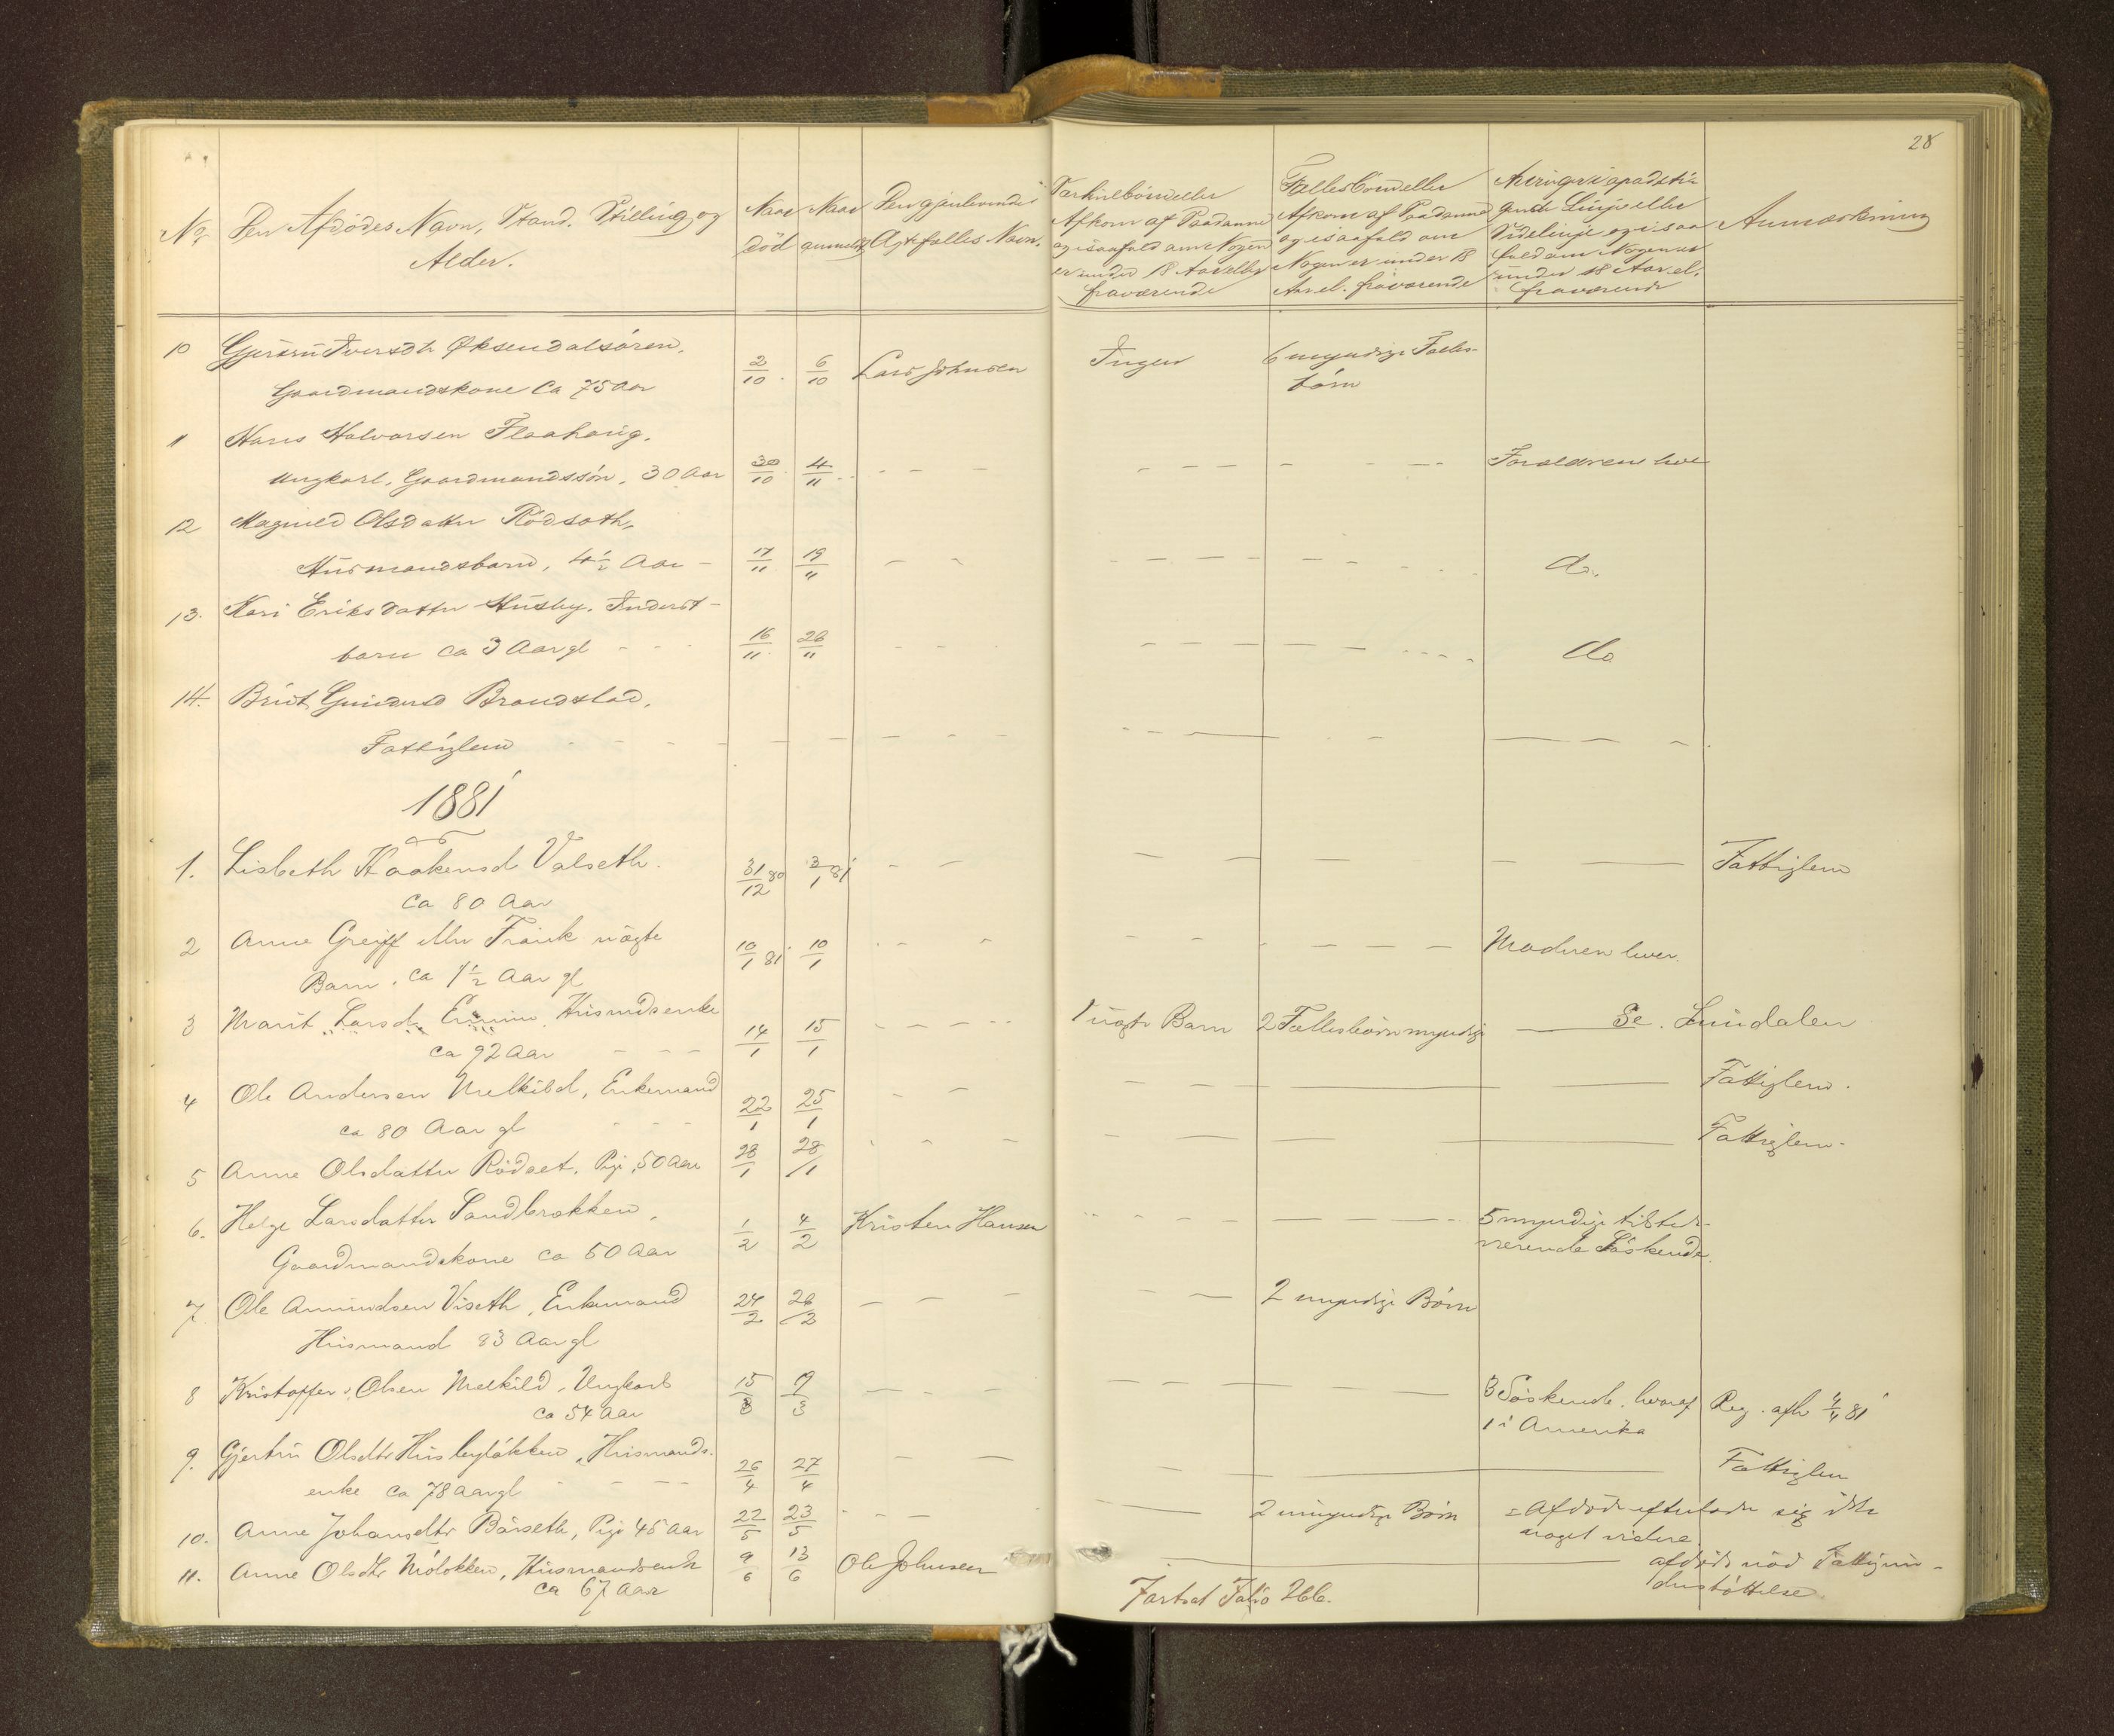 28
No Den Afdødes Navn, Stand, Stilling og Alder.
Naar død
Naar anmeldt
Den gjenlevende Ægtefælles Navn.
Særkuldbørn eller Afkom af Saadanne og isaafald om Nogen er under 18 Aar eller fraværende
Fællesbørn eller Afkom af Saadanne og isaafald om Nogen er under 18 Aar el. fraværende
Arvinger i opadstigende Linje eller Sidelinje og i saa fald om Nogen er under 18 Aar el. fraværende
Anmærkning
10 Iversdtr Øksendalsøren, 2/10 6/10 Lars Johnsen Ingen 6 myndige Fælles-
Gaardmandskone Ca 75 Aar børn
11 Hans Halvorsen Flaahaug,
Ungkarl, Gaardmandssøn, 30 Aar 30/10 4/11 - - - Forældrene leve
12 Magnild Olsdatter Rødsæth,
Husmandsbarn, 4½ Aar - 17/11 19/11 - - do.
13. Kari Eriksdatter Husby. Inderst-
barn ca 3 Aar gl - - - 16/11 26/11 - - do
14. Brandstad,
Fattiglem - - -
1881
1. Lisbeth Haakensd Valseth. 31/12 80 3/1 81 - - Fattiglem
ca 80 Aar
2 Anne Greiff eller Frank uægte 10/1 81 10/1 - - Moderen lever.
Barn. ca 1½ Aar gl
3 Marit Larsd. Husmdsenke 14/1 15/1 - - - 1 uægte Barn 2 Fællesbørn myndige Se. Sundalen
ca 92 Aar - - -
4 Ole Andersen Melkild, Enkemand 22/1 25/1 - - Fattiglem.
ca 80 Aar gl - - -
5 Anne Olsdatter Rødset, Pige, 50 Aar 28/1 28/1 - - - Fattiglem -
6. Helge Larsdatter Sandbrækken, 1/2 4/2 Kristen Hansen 5 myndige tilstede-
Gaardmandskone ca 50 Aar værende Søskende.
7 Ole Amundsen Viseth, Enkemand 24/2 26/2 - - - 2 myndige Børn
Husmand 83 Aar gl
8 Kristoffer Olsen Melkild, Ungkarl 15/3 3 - - - 3 Søskende, hvoraf Reg. afh 4/4 81
ca 54 Aar 1 i Amerika
9. Gjertru Olsdtr Husbyløkken, Husmands- 26/4 27/4 - - - Fattiglem
enke ca 78 Aar gl - - -
10. Anne Johansdtr Bårseth, Pige 45 Aar 22/5 23/5 - - - 2 umyndige Børn = Afdøde efterlader sig ikke
noget videre
11. Anne Olsdtr Moløkken, Husmandsenke 9/6 13/6 Ole Johnsen afdøde nød Fattigun-
ca 67 Aar derstøttelse
Fortsat Folio 266.